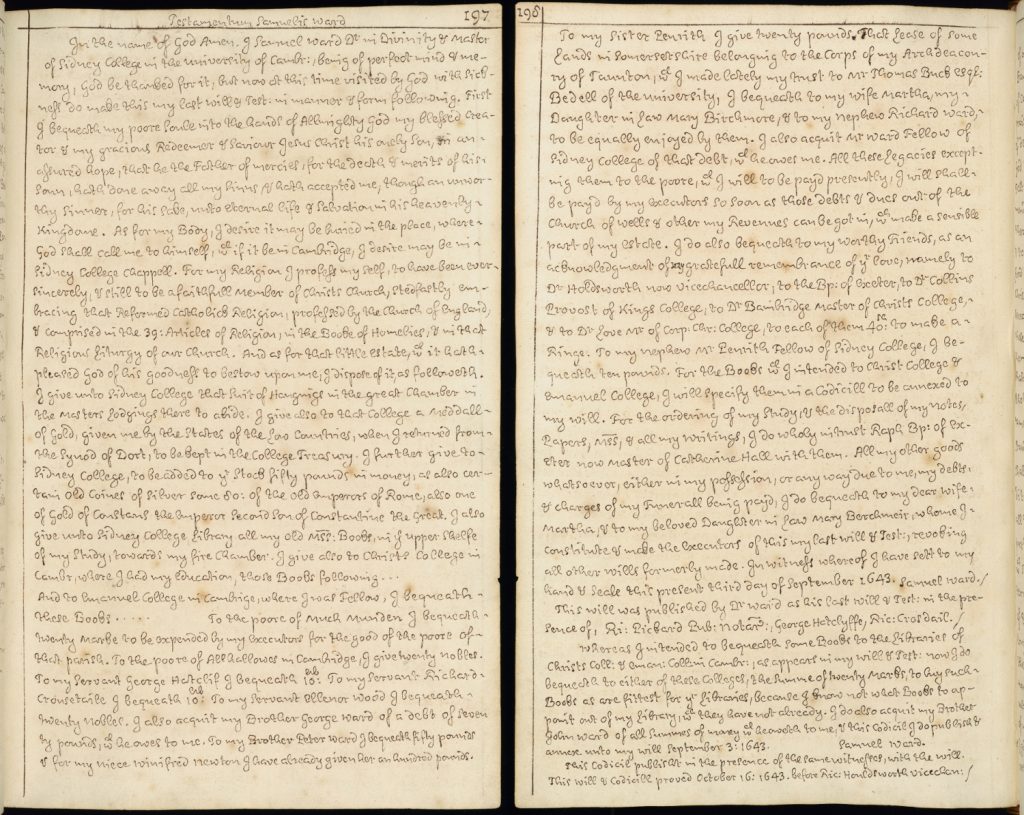 Testamentum Samuelis Ward
197
In the name of God Amen. I Samuel Ward Dr in Divinity & Master
of Sidney College in the University of Cambr: being of perfect mind & me-
mory, God be thanked for it, but now at this time visited by God with Sick-
ness do make this my last will & Test: in manner & form following. First
I bequeath my poore Soule into the hands of Allmighty God my blessed Crea-
tor & my gracious Redeemer & Saviour Jesus Christ his onely Son, in an-
assured hope, that he the Father of mercies, for the death & merits of his-
Sonn, hath done away all my Sinns & hath accepted me, though an unwor-
thy Sinner, for his sake, unto eternal life & Salvation in his heavenly-
Kingdome. As for my Body, I desire it may be buried in the place, where-
God shall call me to himself, wch if it be in Cambridge, I desire may be in-
Sidney College Chappell. For my Religion I profess my self, to have been ever-
sincerely, & still to be a faithfull Member of Christs Church, stedfastly em-
bracing that Reformed Catholick Religion, professed by the Church of England,
& comprised in the 39: Articles of Religion, in the Booke of Homelies, & in that
Religious Liturgy of our Church. And as for that little Estate, wch it hath-
pleased God of his goodness to bestow upon me, I dispose of it, as followeth.
I give unto Sidney College that suit of Hangings in the great Chamber in
the Masters Lodgings there to abide. I give also to that College a Meddall-
of Gold, given me by the States of the Low Countries, when I returned from-
the Synod of Dort, to be kept in the College Treasury. I further give to-
Sidney College, to be added to ye Stock fifty pounds in money, as also cer-
tain old Coines of Silver some 80: of the old Emperors of Rome, also one
of Gold of Constans the Emperor Second Son of Constantine the Great. I also
give unto Sidney College Library all my old Mss: Books, in ye upper Shelfe
of my Study, towards my fire Chamber. I give also to Christs College in
Cambr, where I had my Education, those Books following...
And to Emanuel College in Cambrige, where I was Fellow, I bequeath-
these Books..... To the poore of Much Munden I bequeath-
twenty Marke to be expended by my Executors for the good of the poore of-
that parish. To the poore of Allhallowes in Cambridge, I give twenty nobles.
To my servant George Hatclif I bequeath 10lib: To my servant Richard-
Crousetaile I bequeath 10lib: To my servant Ellenor Wood I bequeath-
twenty Nobles. I also acquit my Brother George Ward of a debt of seven
ty pownds, wch he owes to me. To my Brother Peter Ward I bequeath fifty pounds
& for my niece Winifred Newton I have already given her an hundred pounds.
198
To my Sister Penrith I give twenty pounds. That Lease of some
Lands in Somersetshire belonging to the Corps of my Archdeacon-
ry of Taunton, wch I made lately my trust to Mr Thomas Buck Esq:
Bedell of the University, I bequeath to my wife Martha, my-
Daughter in Law Mary Birchmore, & to my nephew Richard Ward,
to be equally enjoyed by them. I also acquit Mr Ward Fellow of
Sidney College of that debt, wch he owes me. All these Legacies except-
ing them to the poore, wch I will to be payd presently, I will shall-
be payd by my executors so soon as those debts & dues out of the
Church of Wells & other my Revenues can be got in, wch make a sensible
part of my estate. I do also bequeath to my worthy Friends, as an
acknowledgment of my gratefull remembrance of yr love, namely to
Dr Holdsworth now Vicechancellor, to the Bp: of Exeter, to Dr Collins
Provost of Kings College, to Dr Bambridge Master of Christs College,
& to Dr Love Mr of Corp: Chr: College, to each of them 40s: to make a-
Ringe. To my nephew Mr Penrith Fellow of Sidney College, I be-
queath ten pounds. For the Books wch I intended to Christ College &
Emanuel College, I will specify them in a Codicill to be annexed to
my will. For the ordering of my Study, & the disposall of my notes,
Papers, Mss, & all my Writings, I do wholy intrust Raph Bp: of Ex-
eter now Master of Catherine Hall with them. All my other goods
whatsoever, either in my possession, or any way due to me, my debts,
& charges of my Funerall being payd, I do bequeath to my dear wife-
Martha, & to my beloved Daughter in Law Mary Berchmeir, whome I-
constitute & make the executors of this my last will & Test:, revoking
all other wills formerly made. In witness whereof I have sett to my
hand & seale this present third day of September 1643. Samuel Ward./
This will was published by Dr Ward as his last will & Test: in the pre-
sence of, Ri: Pickard Pub: Notary:, George Hatclyffe, Ric: Crosdail./
Whereas I intended to bequeath some Books to the Libraries of
Christs Coll: & Eman: Coll: in Cambr:, as appears in my will & Test: now I do
bequeath to either of these Colleges, the Summe of twenty Marks, to buy such-
Books as are fittest for yr Libraries, because I know not what Books to ap-
point out of my Library, wch they have not already. I do also acquit my Brother
John Ward of all summes of money wch he oweth to me, & this Codicil I do publish &
annexe unto my will September 3: 1643. Samuel Ward.
This Codicil publisht in the presence of the same witnesses, with the will.
This will & Codicill proved October 16: 1643. before Ric: Houldsworth Vicechan:/